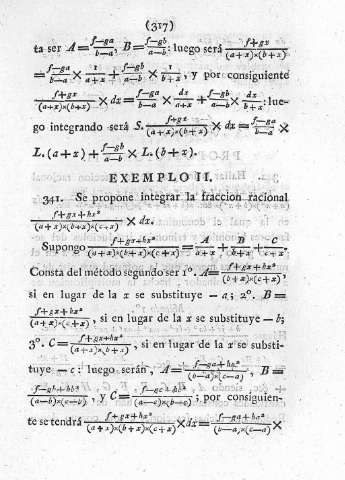 (317)
ta ser A = f−ga/b−a, B = f−gb/a−b: luego será f+gx/(a+x)×(b+x)
= f−ga/b−a × 1/a+x + f−gb/a−b × 1/b+x, y por consiguiente
f+gx/(a+x)×(b+x) × dx = f−ga/b−a × dx/a+x + f−gb/a−b × dx/b+x: lue-
go integrando será S. f+gx/(a+x)×(b+x) × dx = f−ga/b−a ×
L.(a+x) + f−gb/a−b × L.(b+x).
EXEMPLO II.
341. Se propone integrar la fraccion racional
f+gx+hx²/(a+x)×(b+x)×(c+x) × dx.
Supongo f+gx+hx²/(a+x)×(b+x)×(c+x) = A/a+x + B/b+x + C/c+x.
Consta del método segundo ser 1º. A = f+gx+hx²/(b+x)×(c+x),
si en lugar de la x se substituye −a; 2º. B =
f+gx+hx²/(a+x)×(c+x), si en lugar de la x se substituye −b;
3º. C = f+gx+hx²/(a+x)×(b+x), si en lugar de la x se substi-
tuye −c: luego serán, A = f−ga+ha²/(b−a)×(c−a), B =
f−gb+hb²/(a−b)×(c−b), y C = f−gc+hc²/(a−c)×(b−c); por consiguien-
te se tendrá f+gx+hx²/(a+x)×(b+x)×(c+x) × dx = f−ga+ha²/(b−a)×(c−a) ×